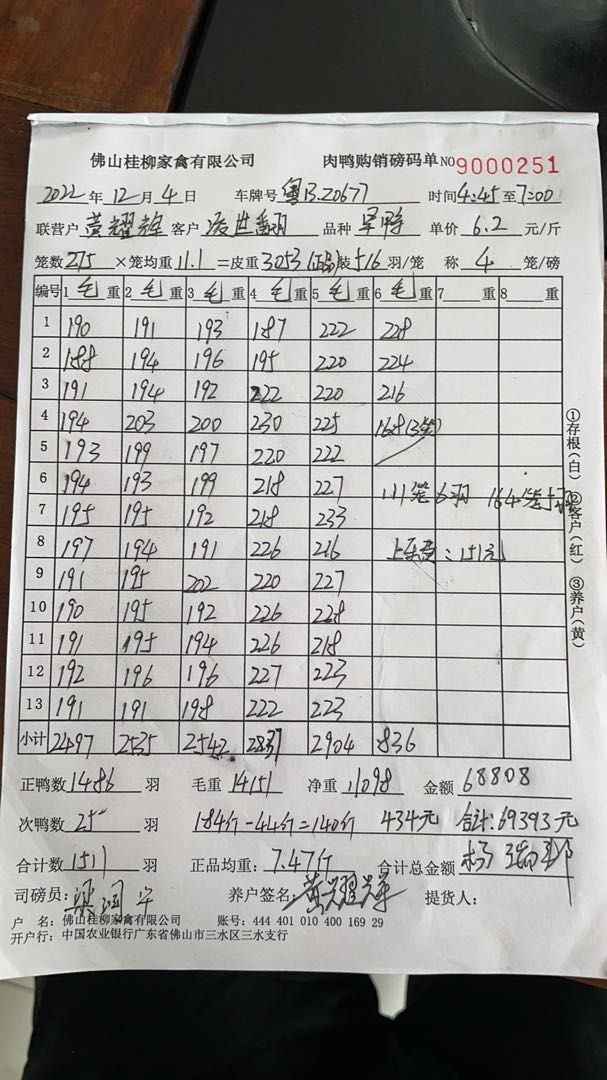 佛山桂柳家禽有限公司 肉鸭购销磅码单 NO 9000251
2022年12月4日 车牌号 粤B.Z0677 时间4:45至7:00
联营户 黄耀辉 客户 品种 单价 6.2 元/斤
笼数275×笼均重11.1=皮重3053 装516羽/笼 称 4 笼/磅
编号 1 毛 重 2 毛 重 3 毛 重 4 毛 重 5 毛 重 6 毛 重 7 重 8 重
1 190 191 193 187 222 228
2 188 194 196 195 220 224
3 191 194 192 222 220 216
4 194 203 200 230 225 168(3笼)
5 193 199 197 220 222
6 194 193 199 218 227 111笼6羽 164笼5羽
7 195 195 192 218 233
8 197 194 191 226 216 上车费:151元
9 191 195 202 220 227
10 190 195 192 226 228
11 191 195 194 226 218
12 192 196 196 227 223
13 191 191 198 222 223
小计 2497 2535 2542 2837 2904 836
正鸭数1486羽 毛重14151 净重11098 金额68808
次鸭数25羽 184斤-44斤=140斤 434元 合计:69393元
合计数1511羽 正品均重:7.47斤 合计总金额
司磅员: 养户签名:黄耀辉 提货人:
户 名:佛山桂柳家禽有限公司 账号:444 401 010 400 169 29
开户行:中国农业银行广东省佛山市三水区三水支行
①存根(白)②客户(红)③养户(黄)